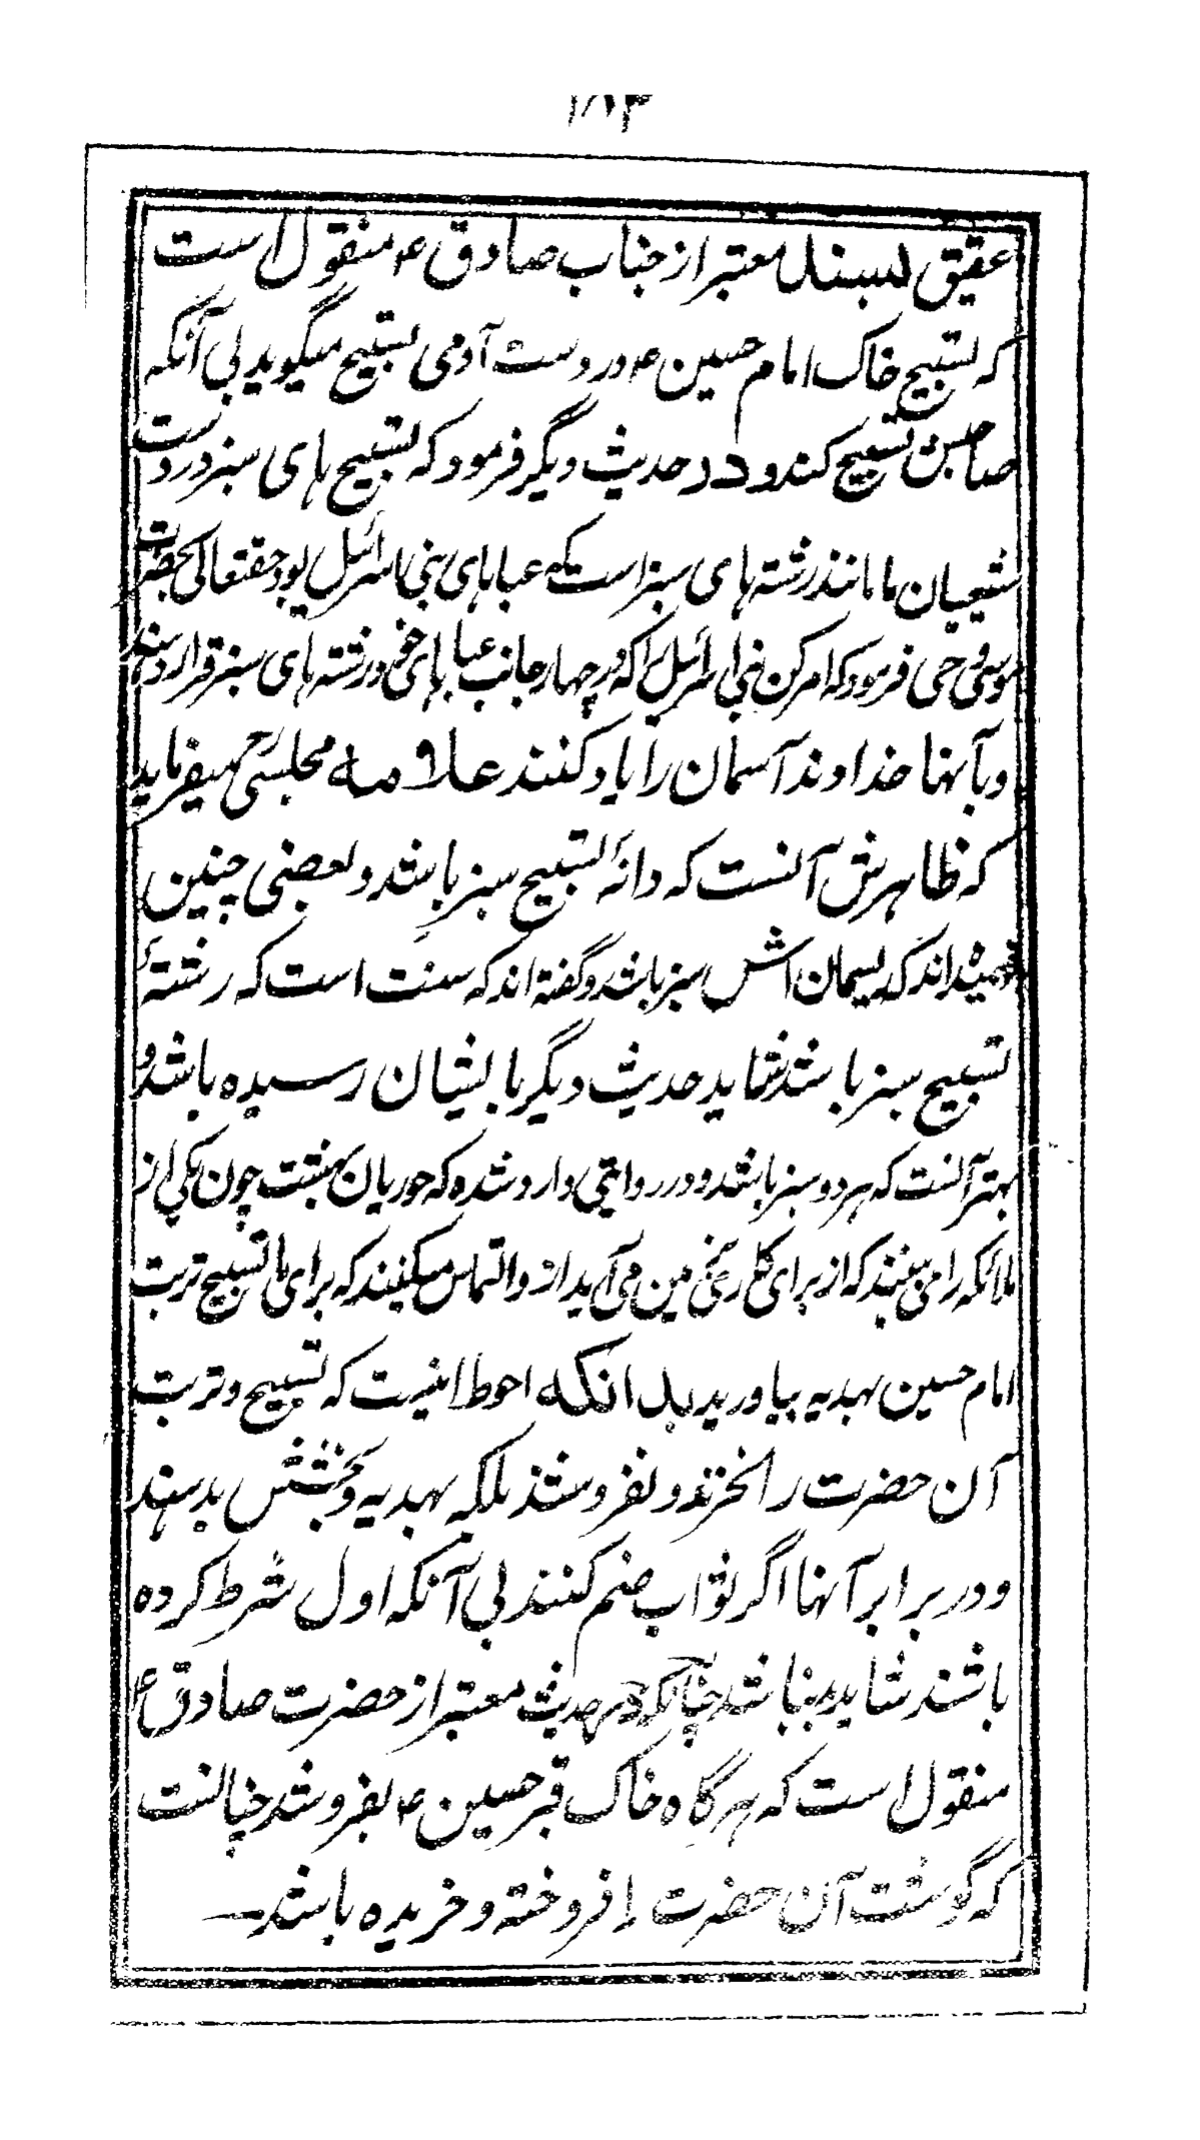 عقیق بسند معتبر از جناب صادق ع منقول است
که تسبیح خاک امام حسین ع در دست آدمی تسبیح میگوید بی آنکه
صاحبش تسبیح کند و در حدیث دیگر فرمود که تسبیح های سبز در دست
شیعیان ما مانند رشته های سبز است که عباهای بنی اسرائیل بود حقتعالی بحضرت
موسی وحی فرمود که امر کن بنی اسرائیل را که در چهار جانب عباهای خود رشته های سبز قرار دهند
و بآنها خداوند آسمان را یاد کنند علامه مجلسی رح میفرماید
که ظاهرش آنست که دانهٔ تسبیح سبز باشد و بعضی چنین
فهمیده اند که ریسمان اش سبز باشد و گفته اند که سنت است که رشتهٔ
تسبیح سبز باشد شاید حدیث دیگر بایشان رسیده باشد و
بهتر آنست که هر دو سبز باشد و در روایتی وارد شده که حوریان بهشت چون یکی از
ملائکه را می بینند که از برای کاری بزمین می آید از و التماس میکنند که برای ما تسبیح تربت
امام حسین بهدیه بیاورید بدانکه احوط اینست که تسبیح و تربت
آن حضرت را نخرند و نفروشند بلکه بهدیه و بخشش بدهند
و در برابر آنها اگر ثواب ضم کنند بی آنکه اول شرط کرده
باشند شاید بد نباشد چنانکه در حدیث معتبر از حضرت صادق ع
منقول است که هرگاه خاک قبر حسین ع بفروشد چنانست
که گوشت آن حضرت را فروخته و خریده باشد